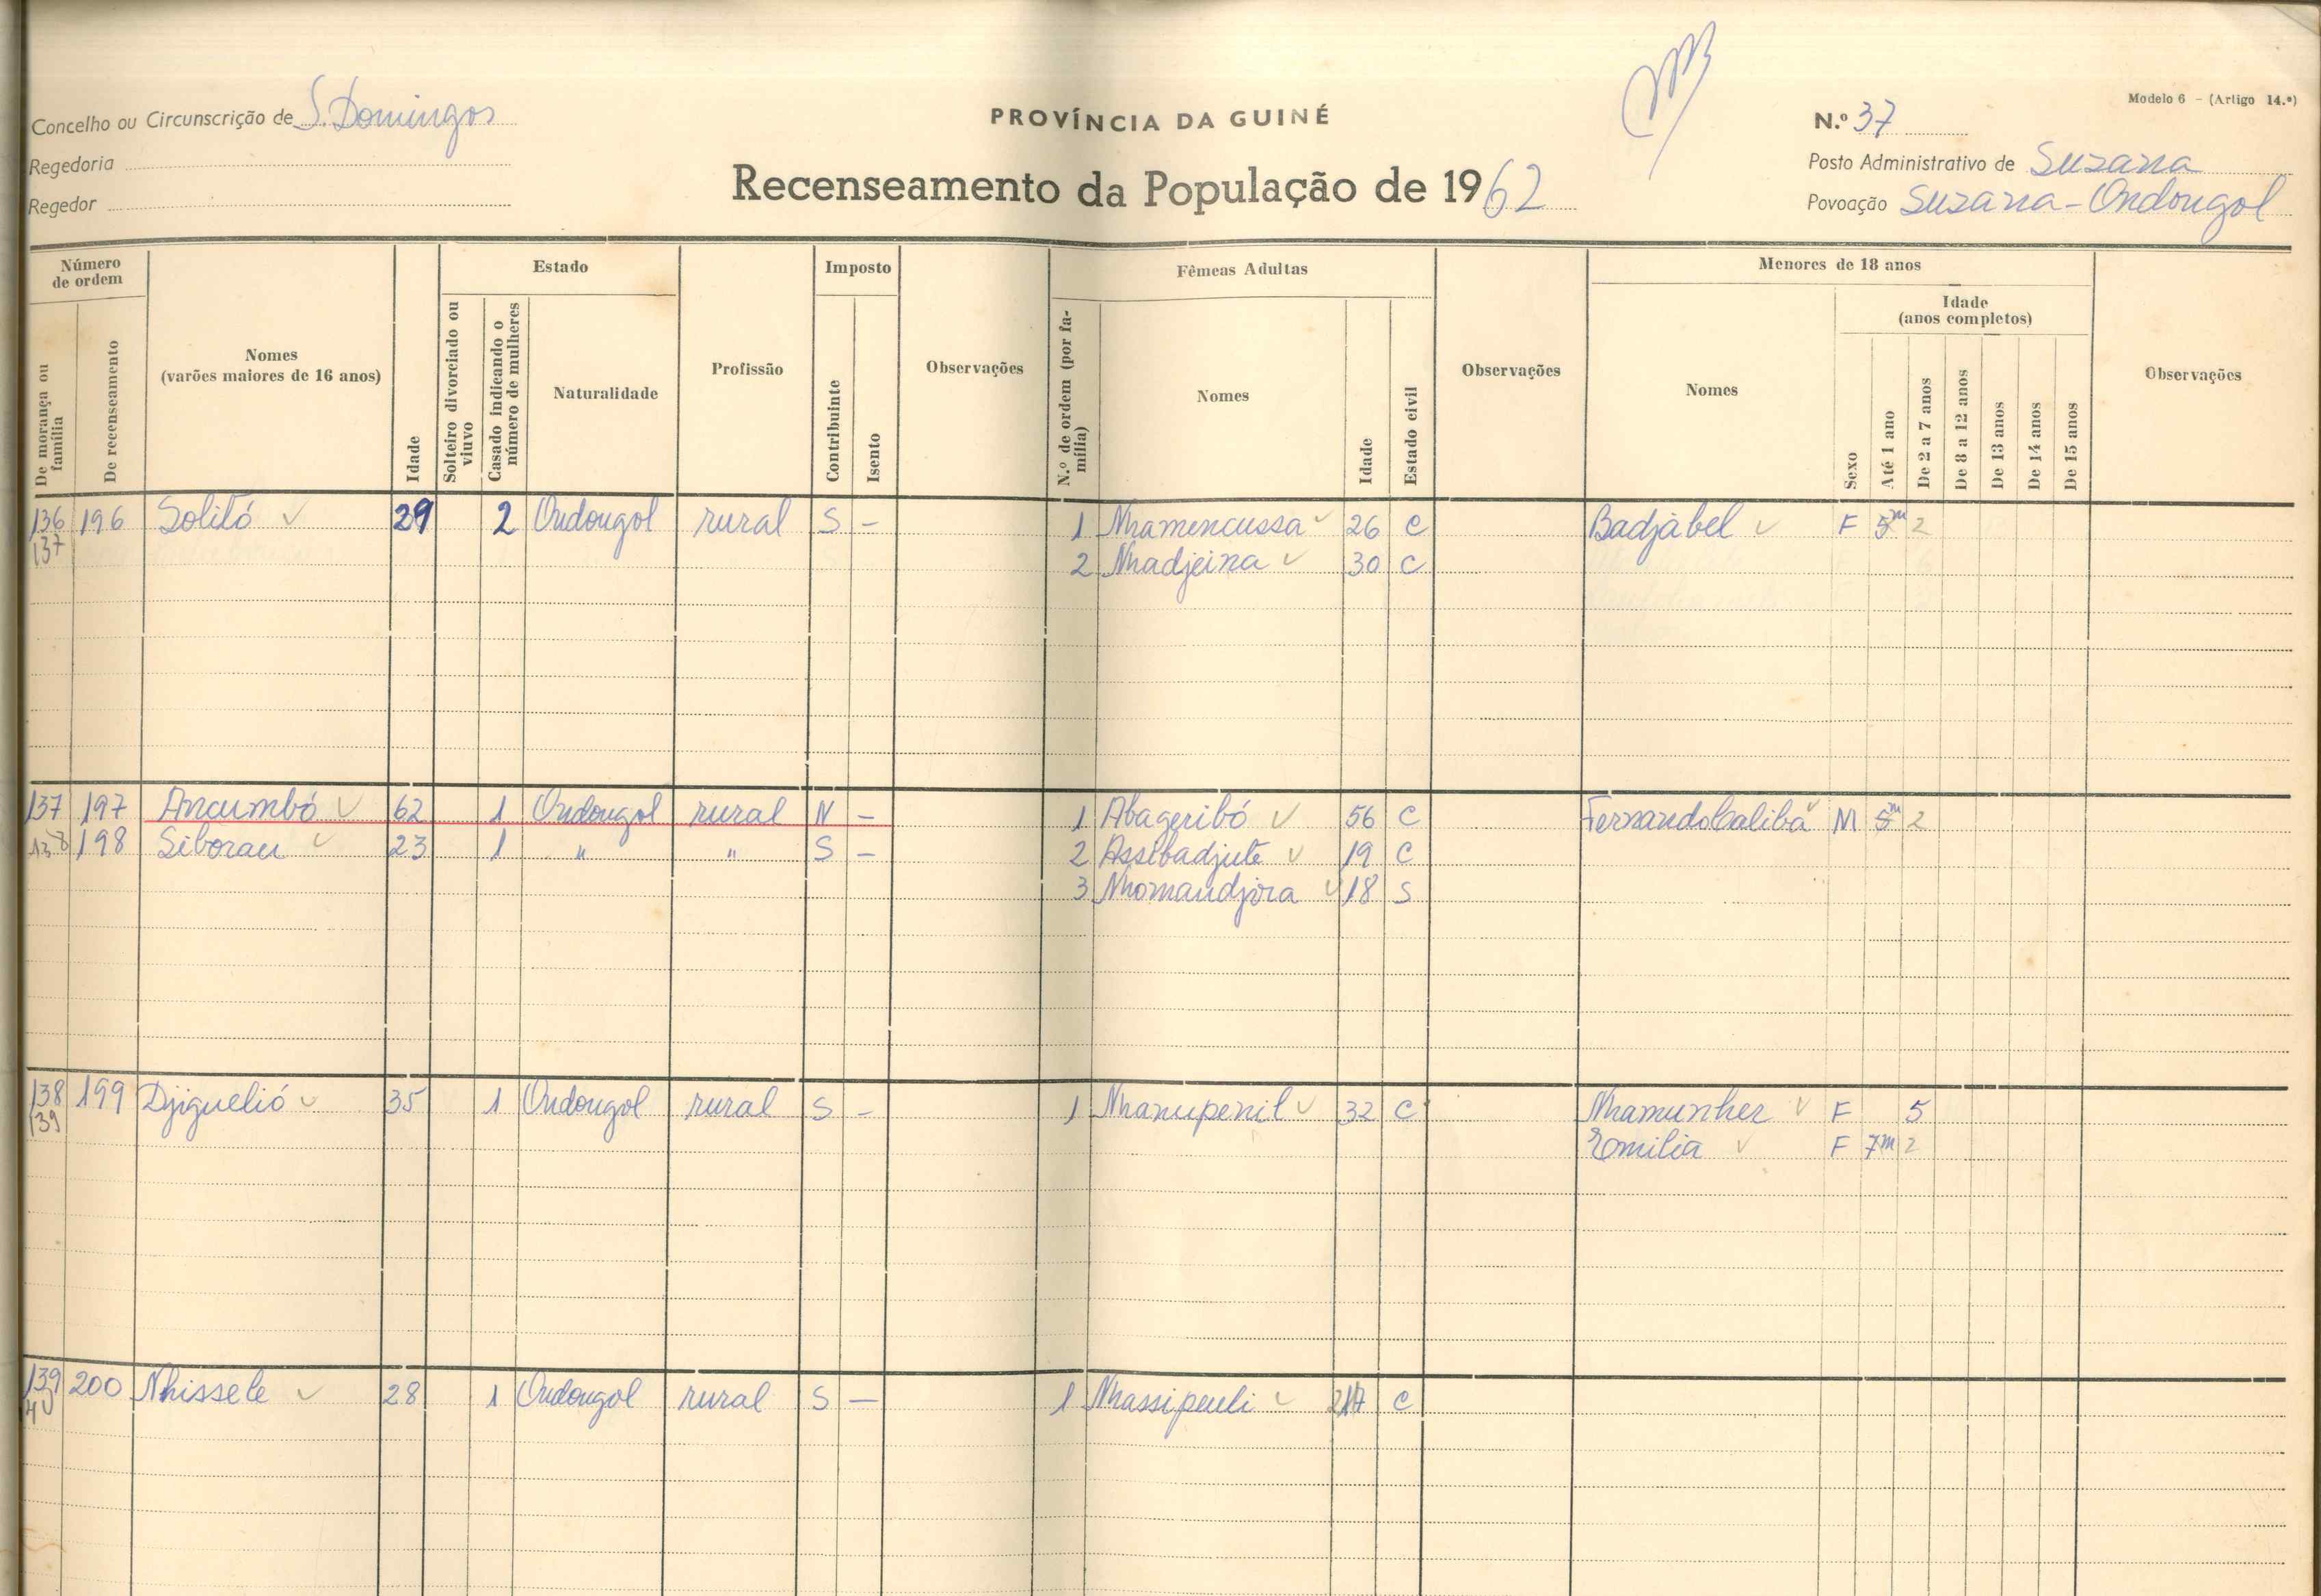 Modelo 6 - (Artigo 14.º)
Concelho ou Circunscrição de S. Domingos
PROVÍNCIA DA GUINÉ
N.º 37
Regedoria
Posto Administrativo de Suzana
Recenseamento da População de 1962
Regedor
Povoação Suzana-Ondongol
Número de ordem
Estado
Imposto
Fêmeas Adultas
Menores de 18 anos
Idade (anos completos)
De morança ou família
De recenseamento
Nomes (varões maiores de 16 anos)
Idade
Solteiro divorciado ou viuvo
Casado indicando o número de mulheres
Naturalidade
Profissão
Contribuinte
Isento
Observações
N.º de ordem (por família)
Nomes
Idade
Estado civil
Observações
Nomes
Sexo
Até 1 ano
De 2 a 7 anos
De 8 a 12 anos
De 13 anos
De 14 anos
De 15 anos
Observações
136 196 Solitó 29 2 Ondongol rural S - 1 Nhamencussa 26 C Badjàbel F 5m 2
137 2 Nhadjeina 30 C
137 197 Ancumbó 62 1 Ondongol rural N - 1 Abageribó 56 C Fernandobalibá M 5m 2
138 198 Siborau 23 1 " " S - 2 Assibadjute 19 C
3 Nhomandjora 18 S
138 199 Djiguelió 35 1 Ondongol rural S - 1 Nhanupenil 32 C Nhamunhez F 5
139 Emilia F 7m 2
139 200 Nhissele 28 1 Ondongol rural S — 1 Nhassipeuli C
40